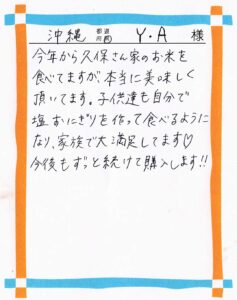 沖縄 都道府県 Y・A 様
今年から久保さん家のお米を
食べてますが、本当に美味しく
頂いてます。子供達も自分で
塩おにぎりを作って食べるように
なり、家族で大満足してます♡
今後もずっと続けて購入します!!